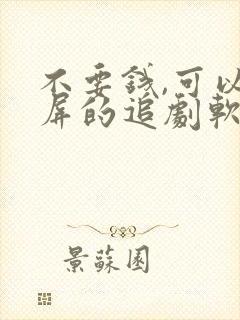 不要錢,可以
屏的追劇軟
景蘇園